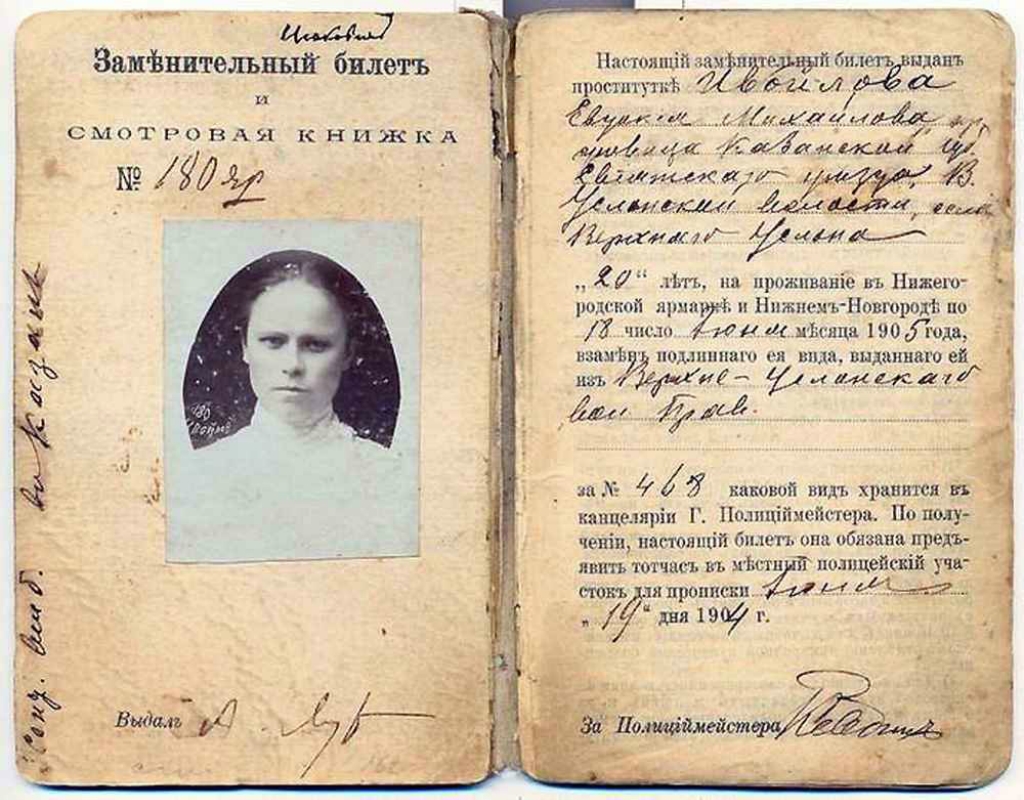 Замѣнительный билетъ
и
СМОТРОВАЯ КНИЖКА
№ 180 яр
Выдалъ А.
въ Казань
Настоящій замѣнительный билетъ выданъ
проституткѣ Ивойлова
Евдокія Михайлова
Казанской губ.
уѣзда, В.
Услонской волости, села
Верхняго Услона
„20“ лѣтъ, на проживаніе въ Нижего-
родской ярмаркѣ и Нижнемъ-Новгородѣ по
18 число Іюня мѣсяца 1905 года,
взамѣнъ подлиннаго ея вида, выданнаго ей
изъ Верхне-Услонскаго
вол. Прав.
за № 468 каковой видъ хранится въ
канцеляріи Г. Полиціймейстера. По полу-
ченіи, настоящій билетъ она обязана предъ-
явить тотчасъ въ мѣстный полицейскій уча-
стокъ для прописки Іюня
„19“ дня 1904 г.
За Полиціймейстера